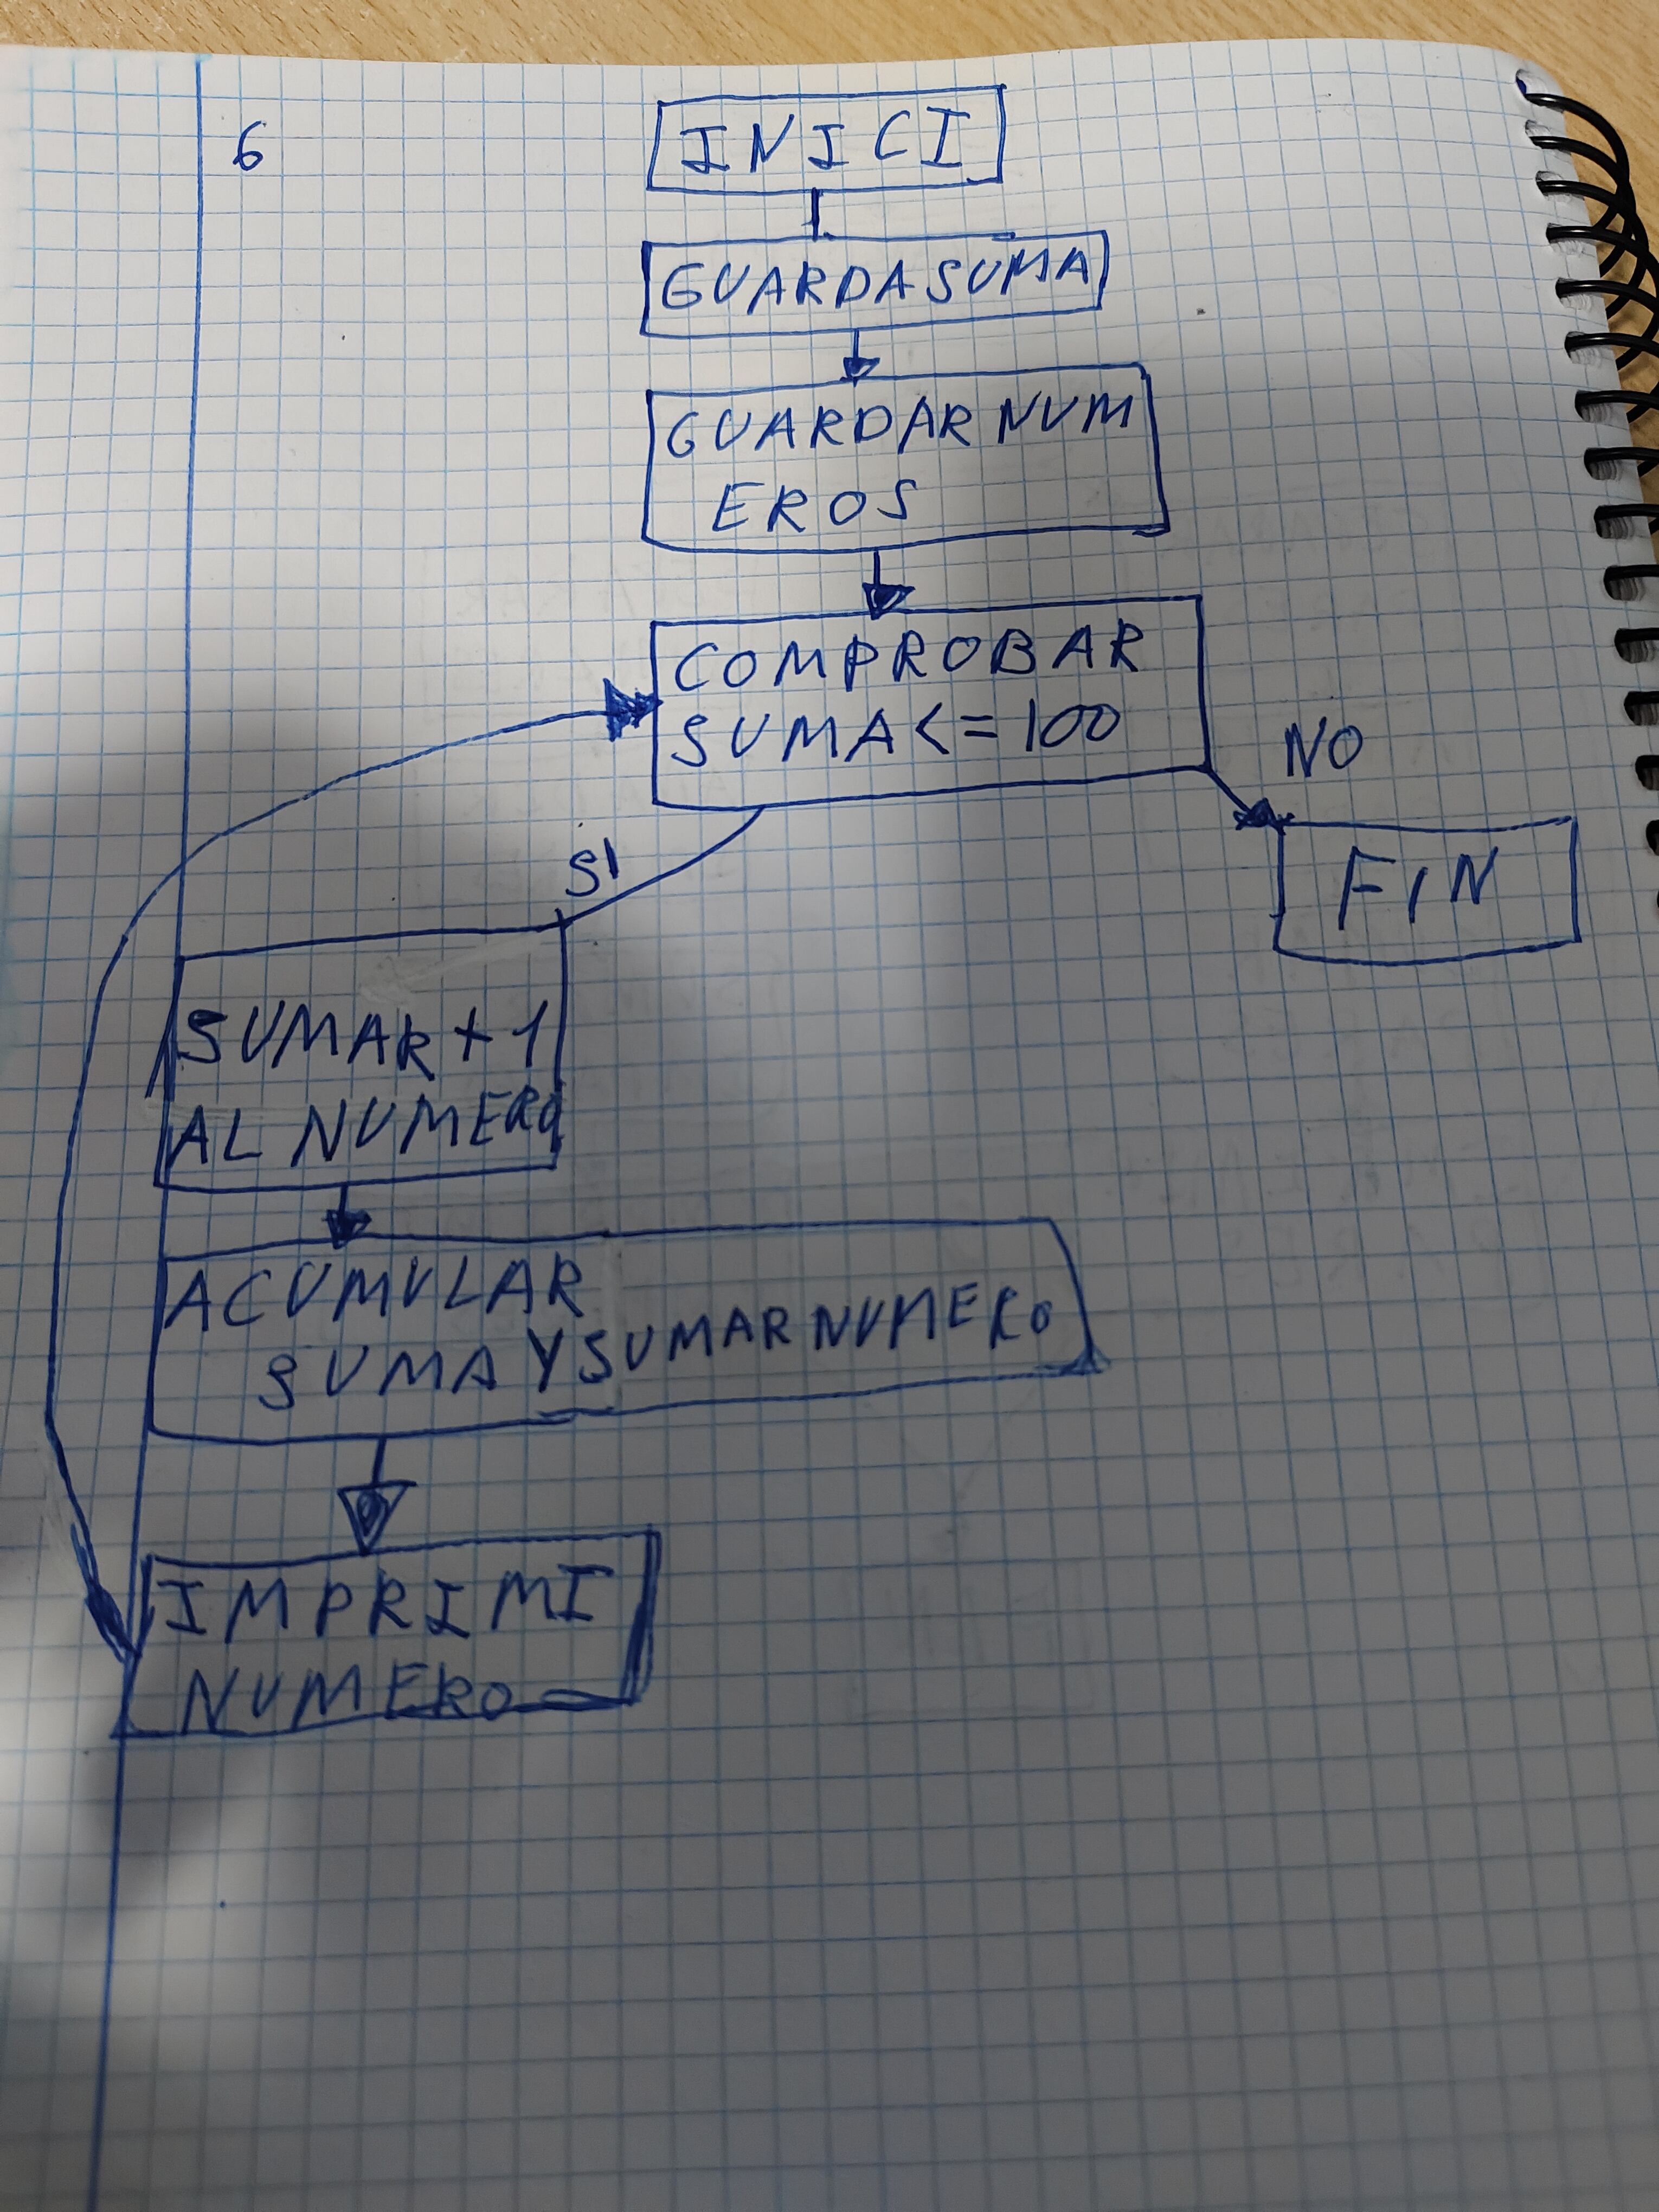 6
INICI
GUARDA SUMA
GUARDAR NUM
EROS
COMPROBAR
SUMA <= 100
NO
SI
FIN
SUMAR + 1
AL NUMERO
ACUMULAR
SUMA Y SUMAR NUMERO
IMPRIMI
NUMERO